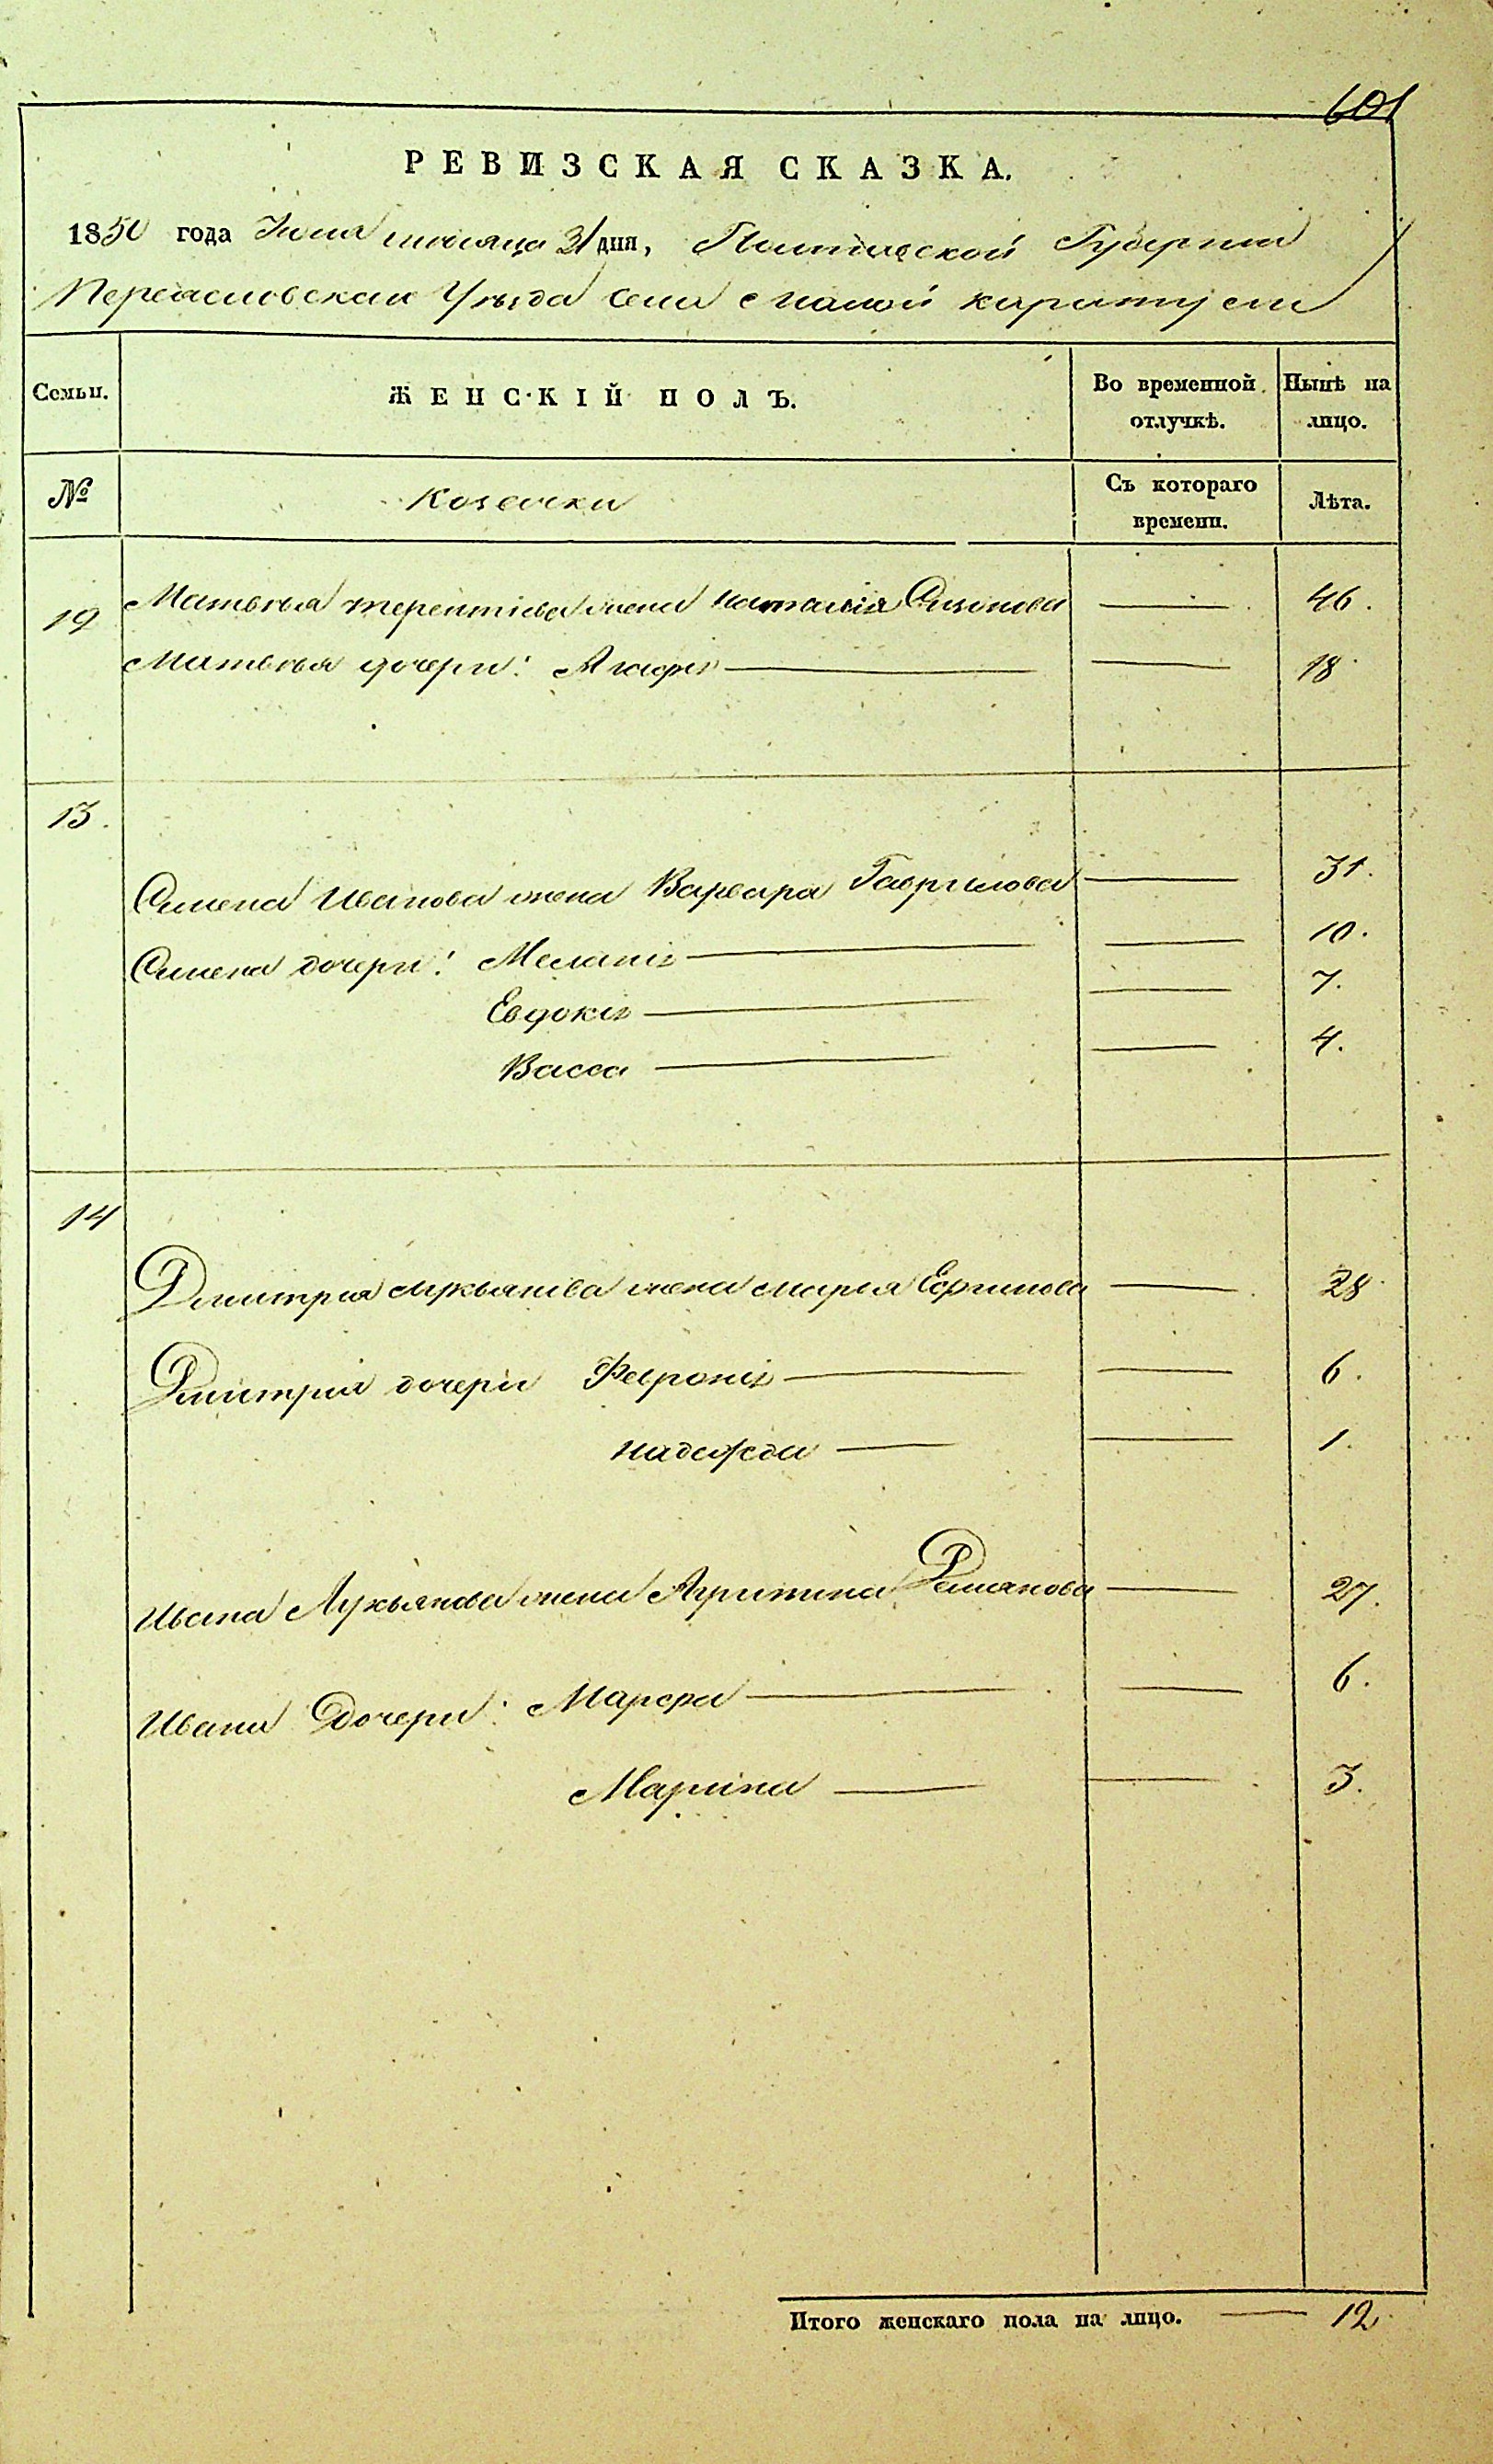 601
РЕВИЗСКАЯ СКАЗКА.
1850 года Июля месяца 31 дня, Полтавской Губернии
Переясловскаго Уезда села малой каратули
Семьи.
ЖЕНСКІЙ ПОЛЪ.
Во временной отлучкѣ.
Нынѣ на лицо.
№
Козачки
Съ котораго времени.
Лѣта.
12 Матвея терентіева жена наталія 46.
Матвея дочери: Агафія 18
13.
Симена Иванова жена Варвара Гаврилова 31.
Симена дочери: Меланія 10.
Евдокія 7.
Васса 4.
14
Дмитрия лукьянова жена мария Ефимова 28
Дмитрия дочери Феѳронія 6.
надежда 1.
Ивана Лукьянова жена Агрипина Романова 27.
Ивана Дочери: Марфа 6.
Марина 3.
Итого женскаго пола на лицо. 12